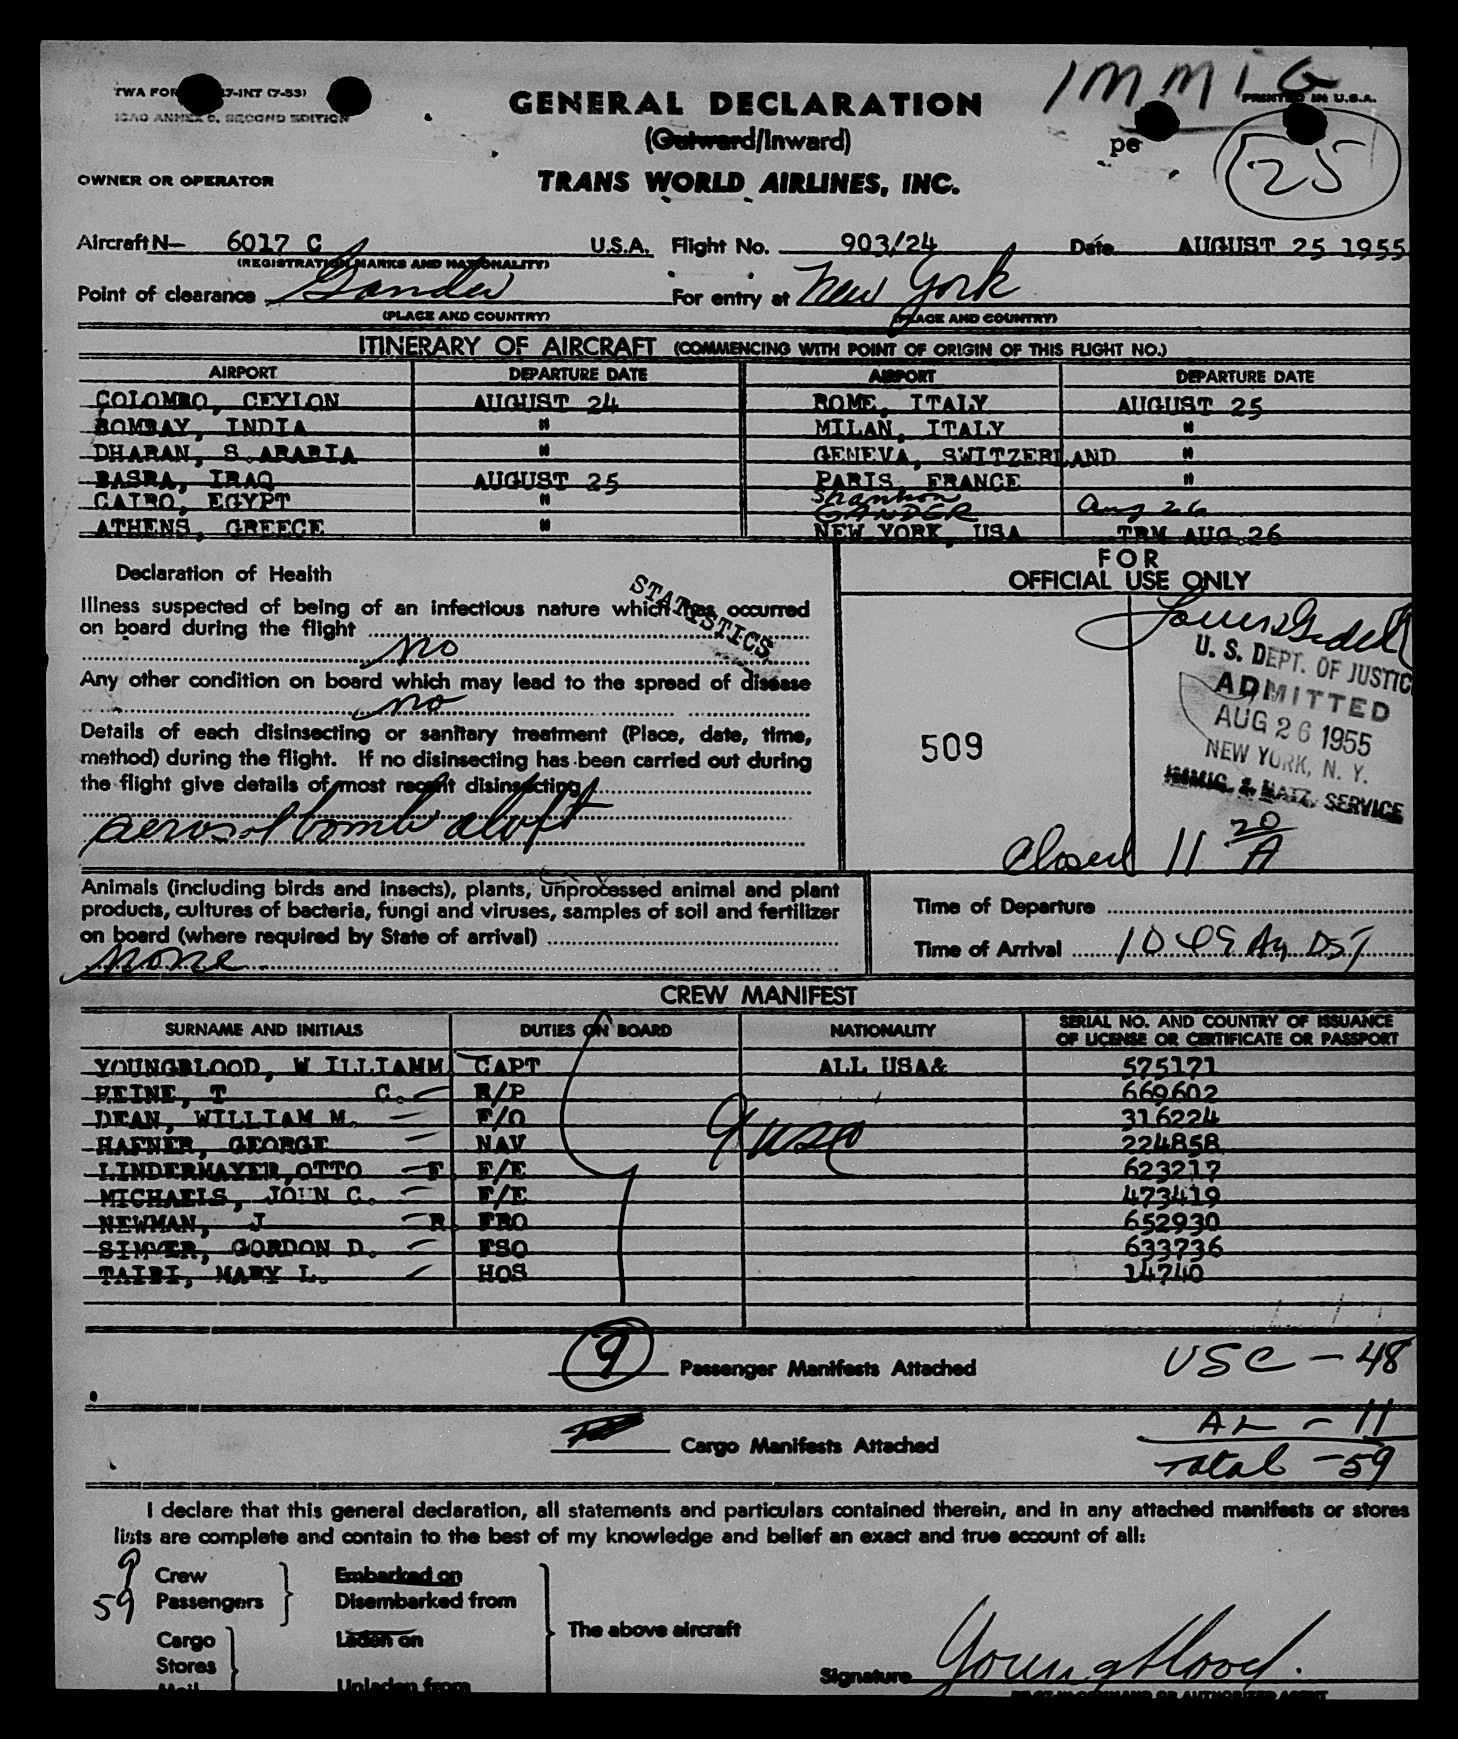 TWA FOR 7-INT (7-53)
ICAO ANNEX 9, SECOND EDITION
IMMIG
PRINTED IN U.S.A.
GENERAL DECLARATION
(Outward/Inward)
pe
25
OWNER OR OPERATOR
TRANS WORLD AIRLINES, INC.
Aircraft N- 6017 C U.S.A. Flight No. 903/24 Date AUGUST 25 1955
(REGISTRATION MARKS AND NATIONALITY)
Point of clearance Gander For entry at New York
(PLACE AND COUNTRY) (PLACE AND COUNTRY)
ITINERARY OF AIRCRAFT (COMMENCING WITH POINT OF ORIGIN OF THIS FLIGHT NO.)
AIRPORT DEPARTURE DATE AIRPORT DEPARTURE DATE
COLOMBO, CEYLON AUGUST 24 ROME, ITALY AUGUST 25
BOMBAY, INDIA " MILAN, ITALY "
DHARAN, S.ARABIA " GENEVA, SWITZERLAND "
BASRA, IRAQ AUGUST 25 PARIS, FRANCE "
CAIRO, EGYPT " Shannon Aug 26
GANDER
ATHENS, GREECE " NEW YORK, USA TRM AUG.26
Declaration of Health
Illness suspected of being of an infectious nature which has occurred
on board during the flight
no
STATISTICS
Any other condition on board which may lead to the spread of disease
no
Details of each disinsecting or sanitary treatment (Place, date, time,
method) during the flight. If no disinsecting has been carried out during
the flight give details of most recent disinsecting
aerosol bomb aloft
FOR
OFFICIAL USE ONLY
U. S. DEPT. OF JUSTIC
ADMITTED
AUG 26 1955
NEW YORK, N. Y.
IMMIG. & NATZ. SERVICE
509
Closed 11 20/A
Animals (including birds and insects), plants, unprocessed animal and plant
products, cultures of bacteria, fungi and viruses, samples of soil and fertilizer
on board (where required by State of arrival)
none
Time of Departure
Time of Arrival 10 49 Am DST
CREW MANIFEST
SURNAME AND INITIALS DUTIES ON BOARD NATIONALITY SERIAL NO. AND COUNTRY OF ISSUANCE
OF LICENSE OR CERTIFICATE OR PASSPORT
YOUNGBLOOD, W ILLIAMM CAPT ALL USA& 575171
HEINE, T C. R/P 669602
DEAN, WILLIAM M. F/O 316224
HAFNER, GEORGE NAV 224858
LINDERMAYER,OTTO F. F/E 623217
MICHAELS, JOHN C. F/E 473419
NEWMAN, J R. FRO 652930
SIMMER, GORDON D. FSO 633736
TAIBI, MARY L. HOS 14740
9 USC
9 Passenger Manifests Attached
USC - 48
Cargo Manifests Attached
AL - 11
Total - 59
I declare that this general declaration, all statements and particulars contained therein, and in any attached manifests or stores
lists are complete and contain to the best of my knowledge and belief an exact and true account of all:
9 Crew Embarked on
59 Passengers Disembarked from
The above aircraft
Cargo Laden on
Stores
Mail Unladen from
Signature Youngblood.
PILOT IN COMMAND OR AUTHORIZED AGENT